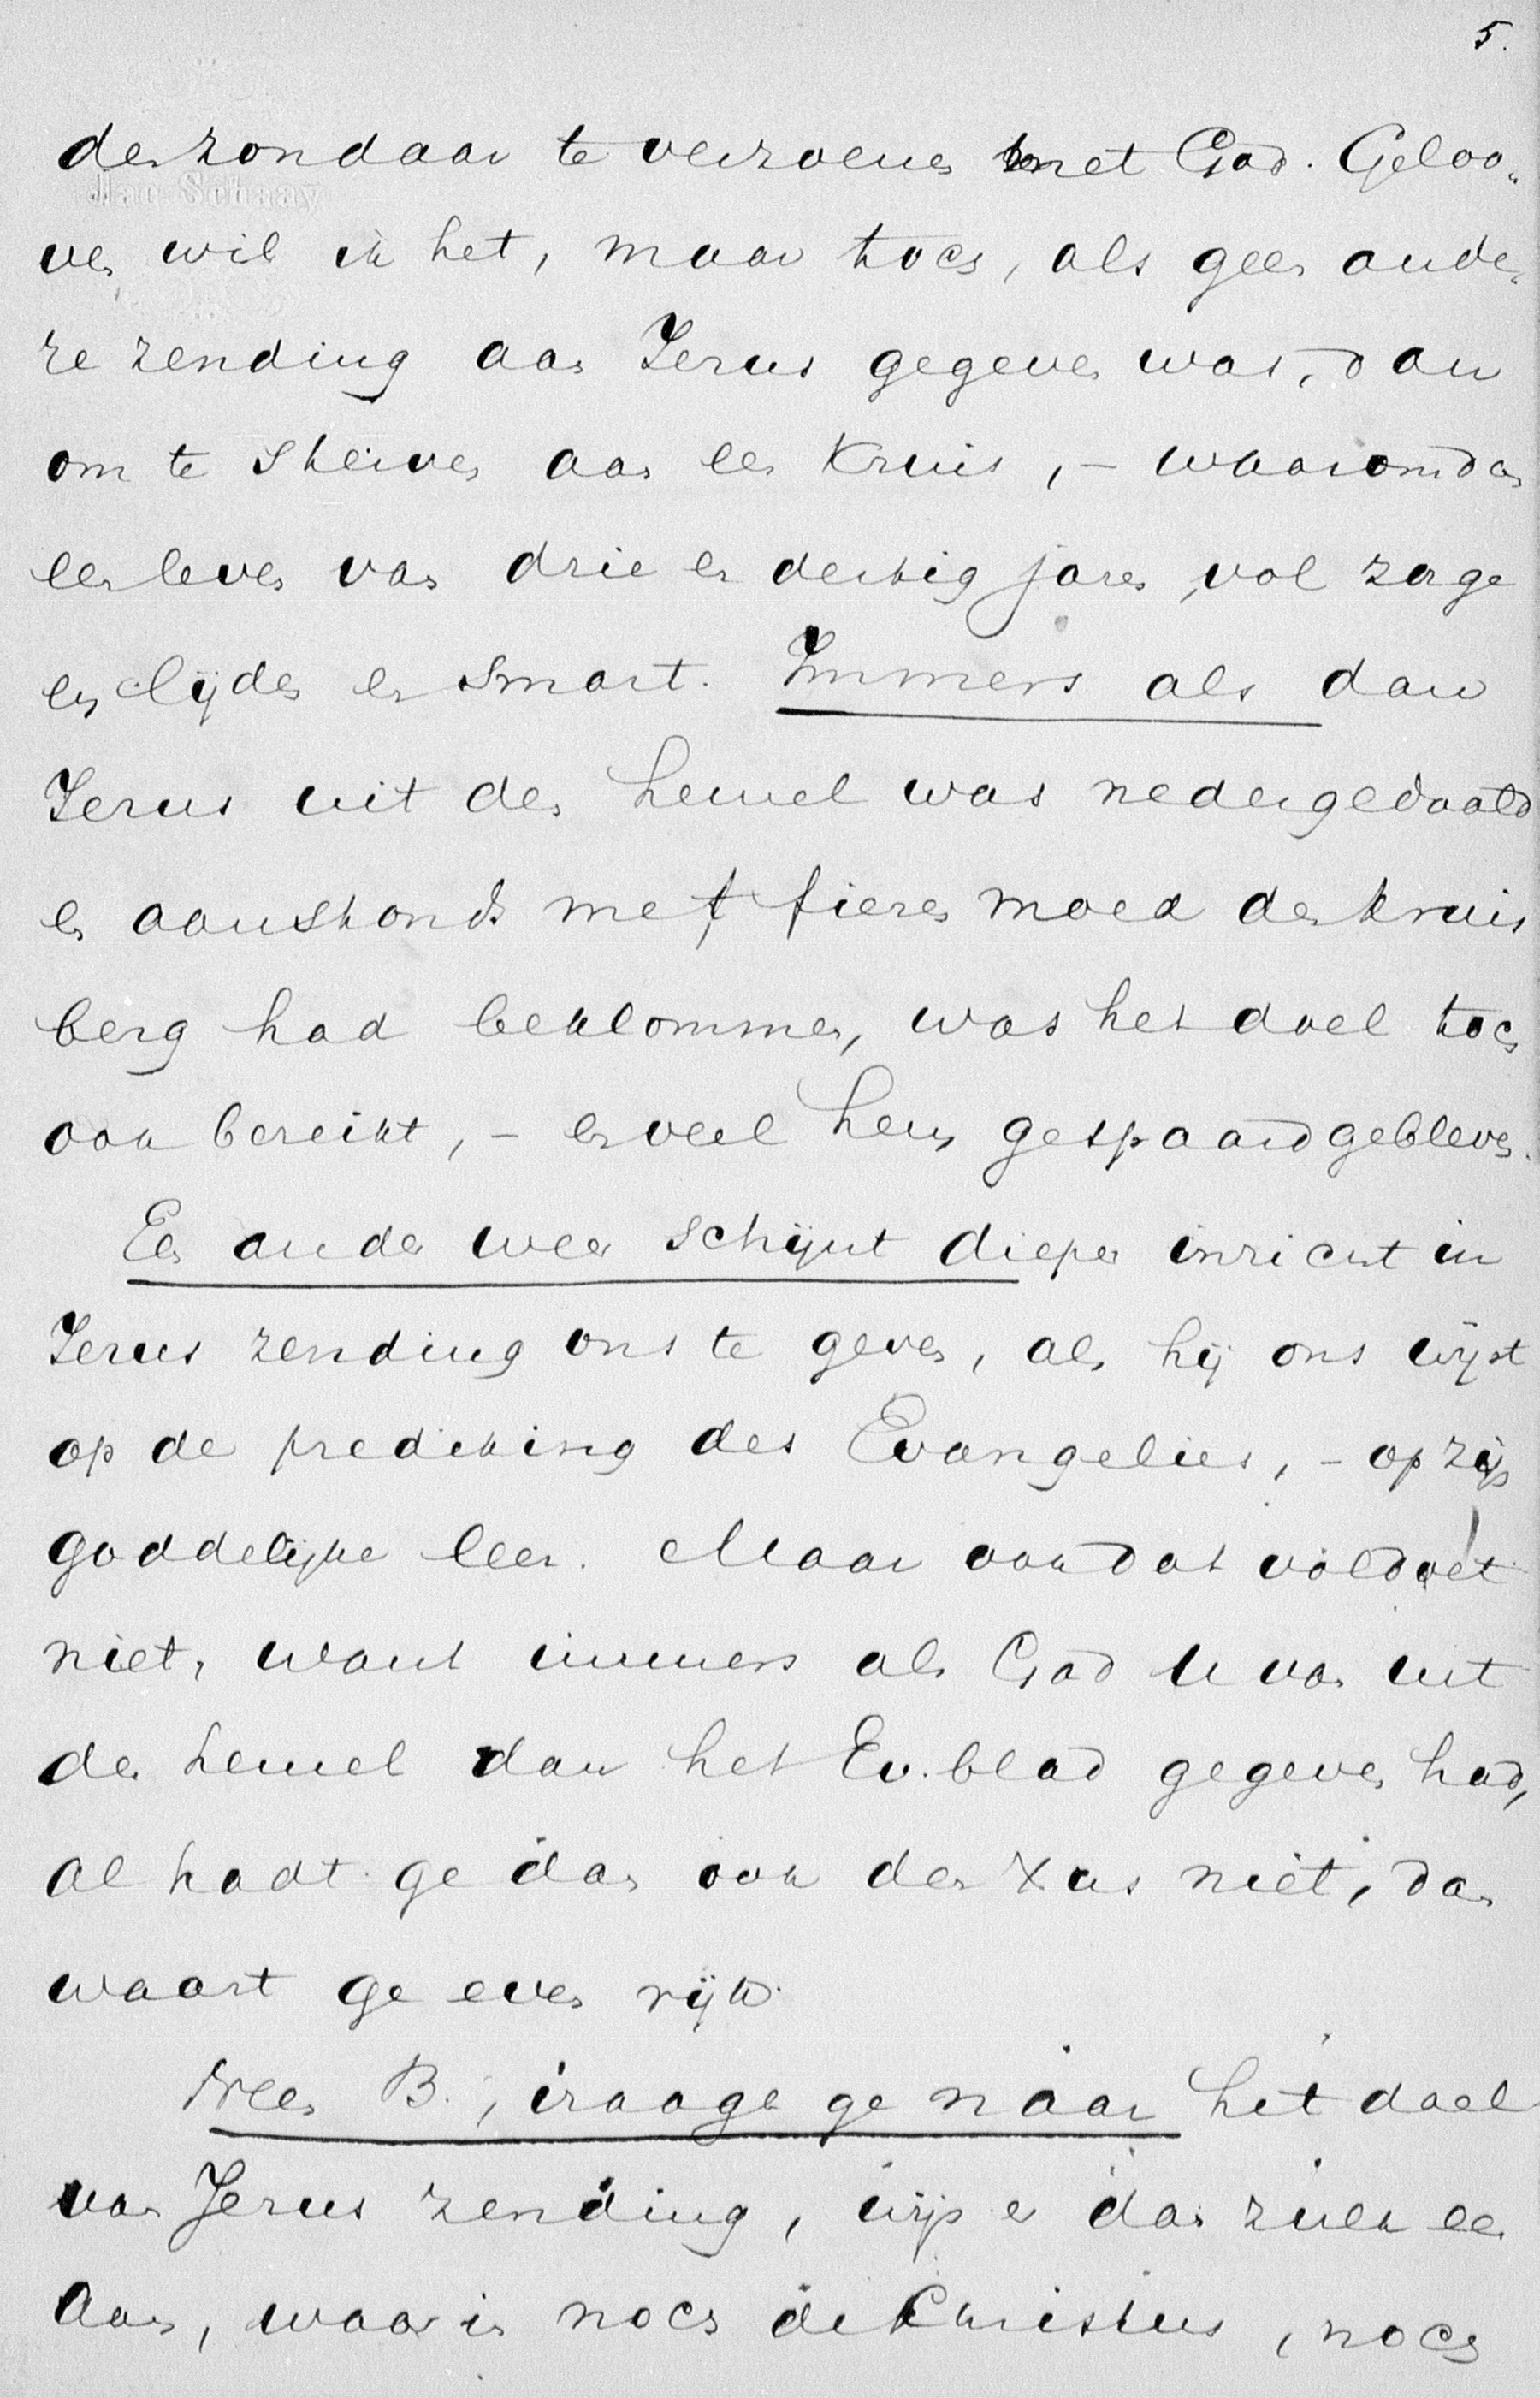 5.
den zondaar te verzoenen met God. Geloo„
ven wil ik het, maar toch, als geen ande„
re zending aan Jezus gegeven was, dan
om te sterven aan een kruis, – waarom dan
een leven van drie en dertig jaren, vol zorge
en lijden en smart. Immers als dan
Jezus uit den hemel was nedergedaald
en aanstonds met fieren moed den kruis
berg had beklommen, was het doel toch
ook bereikt, – en veel hem gespaard gebleven.
Een ander weer schijnt dieper inzicht in
Jezus zending ons te geven, als hij ons wijst
op de prediking des Evangelies, – op zijn
goddelijke leer. Maar ook dat voldoet
niet, want immers als God U van uit
den hemel dan het Ev. blad gegeven had,
al hadt ge dan ook den Xus niet, dan
waart ge even rijk.
Neen B., vraagt ge naar het doel
van Jezus zending, wijs er dan zulk een
aan, waarin noch de Christus, noch
Jac Schaay